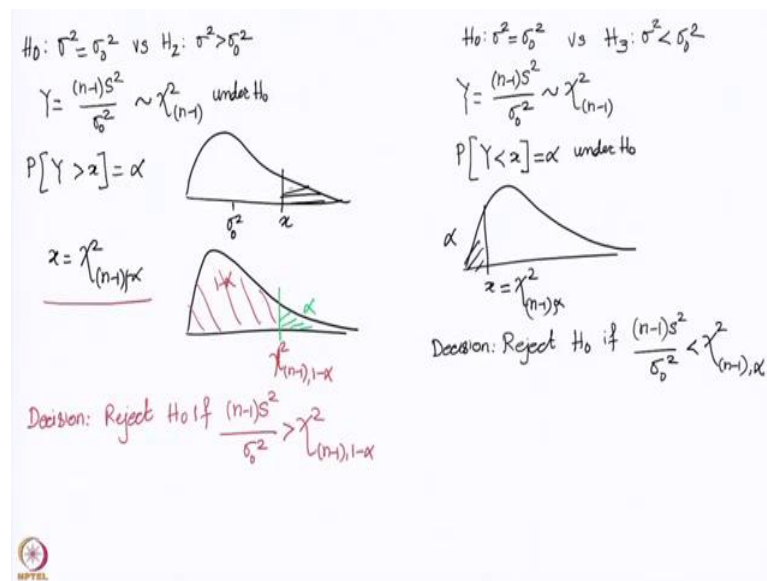 H₀: σ² = σ₀² vs H₂: σ² > σ₀²
Y = (n-1)S² / σ₀² ~ χ²₍ₙ₋₁₎ under H₀
P[Y > x] = α
σ₀² x
x = χ²₍ₙ₋₁₎,₁₋α
1-α α
χ²₍ₙ₋₁₎,₁₋α
Decision: Reject H₀ if (n-1)S² / σ₀² > χ²₍ₙ₋₁₎,₁₋α
H₀: σ² = σ₀² vs H₃: σ² < σ₀²
Y = (n-1)S² / σ₀² ~ χ²₍ₙ₋₁₎
P[Y < x] = α under H₀
α
x = χ²₍ₙ₋₁₎,α
Decision: Reject H₀ if (n-1)s² / σ₀² < χ²₍ₙ₋₁₎,α
NPTEL